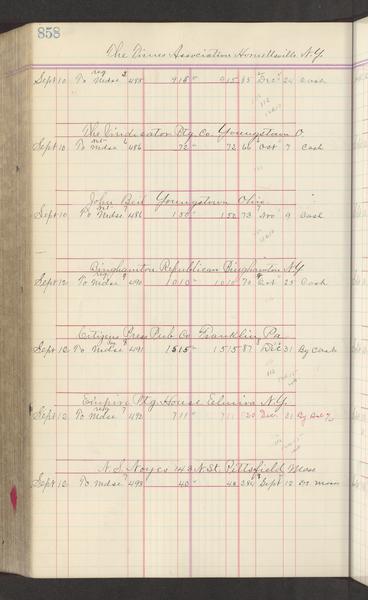 858
The Times Association Hornellsville N.Y.
Sept 10 To Mdse 485 915 915 85 Dec 24 Cash
The Vindicator Ptg. Co. Youngstown O
Sept 10 To Mdse 486 72 72 66 Oct 7 Cash
John Beil Youngstown Ohio
Sept 10 To Mdse 486 150 150 73 Nov 9 Cash
Binghamton Republican Binghamton N.Y
Sept 12 To Mdse 490 1010 1010 70 Oct 25 Cash
Citizen Press Pub Co Franklin Pa
Sept 12 To Mdse 491 1515 1515 87 Dec 31 By Cash
Empire Ptg. House Elmira N.Y.
Sept 12 To Mdse 492 711 711 20 Dec 31 By Bal
N. S. Noyes 143 N St. Pittsfield Mass
Sept 12 To Mdse 493 40 40 Sept 12